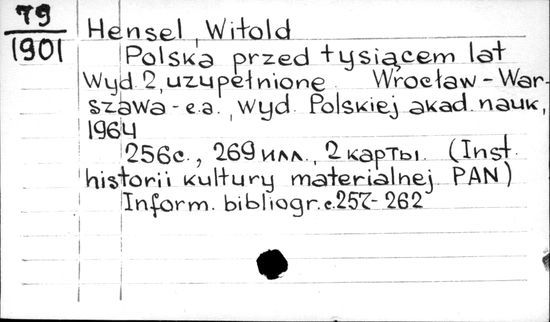 79
1901
Hensel, Witold
Polska przed tysiącem lat
Wyd. 2, uzupełnione Wrocław-War-
szawa-e.a., Wyd. Polskiej akad. nauk,
1964
256с., 269 илл., 2 карты. (Inst.
historii kultury materialnej PAN)
Inform. bibliogr. с. 257-262